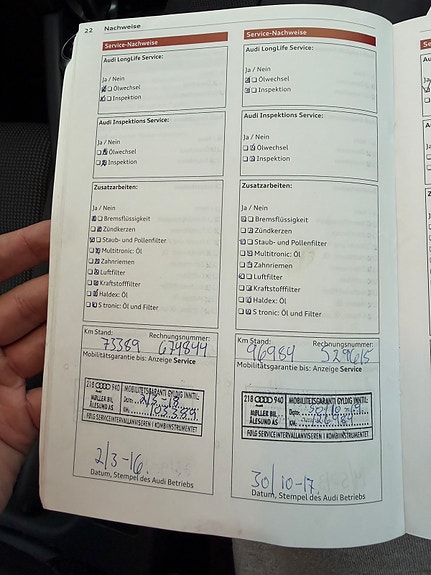 22 Nachweise
Service-Nachweise
Audi LongLife Service:
Ja / Nein
Ölwechsel
Inspektion
Audi Inspektions Service:
Ja / Nein
Ölwechsel
Inspektion
Zusatzarbeiten:
Ja / Nein
Bremsflüssigkeit
Zündkerzen
Staub- und Pollenfilter
Multitronic: Öl
Zahnriemen
Luftfilter
Kraftstofffilter
Haldex: Öl
S tronic: Öl und Filter
Km Stand: Rechnungsnummer:
73389 674844
Mobilitätsgarantie bis: Anzeige Service
218 Audi 940
MØLLER BIL
ÅLESUND AS
MOBILITETSGARANTI GYLDIG INNTIL:
Dato: 2/3-18
KM: 103.389
FØLG SERVICEINTERVALLANVISEREN I KOMBIINSTRUMENTET
2/3-16.
Datum, Stempel des Audi Betriebs
Service-Nachweise
Audi LongLife Service:
Ja / Nein
Ölwechsel
Inspektion
Audi Inspektions Service:
Ja / Nein
Ölwechsel
Inspektion
Zusatzarbeiten:
Ja / Nein
Bremsflüssigkeit
Zündkerzen
Staub- und Pollenfilter
Multitronic: Öl
Zahnriemen
Luftfilter
Kraftstofffilter
Haldex: Öl
S tronic: Öl und Filter
Km Stand: Rechnungsnummer:
96984 529615
Mobilitätsgarantie bis: Anzeige Service
218 Audi 940
MØLLER BIL
ÅLESUND AS
MOBILITETSGARANTI GYLDIG INNTIL:
Dato: 30/10
KM: 126984
FØLG SERVICEINTERVALLANVISEREN I KOMBIINSTRUMENTET
30/10-17.
Datum, Stempel des Audi Betriebs